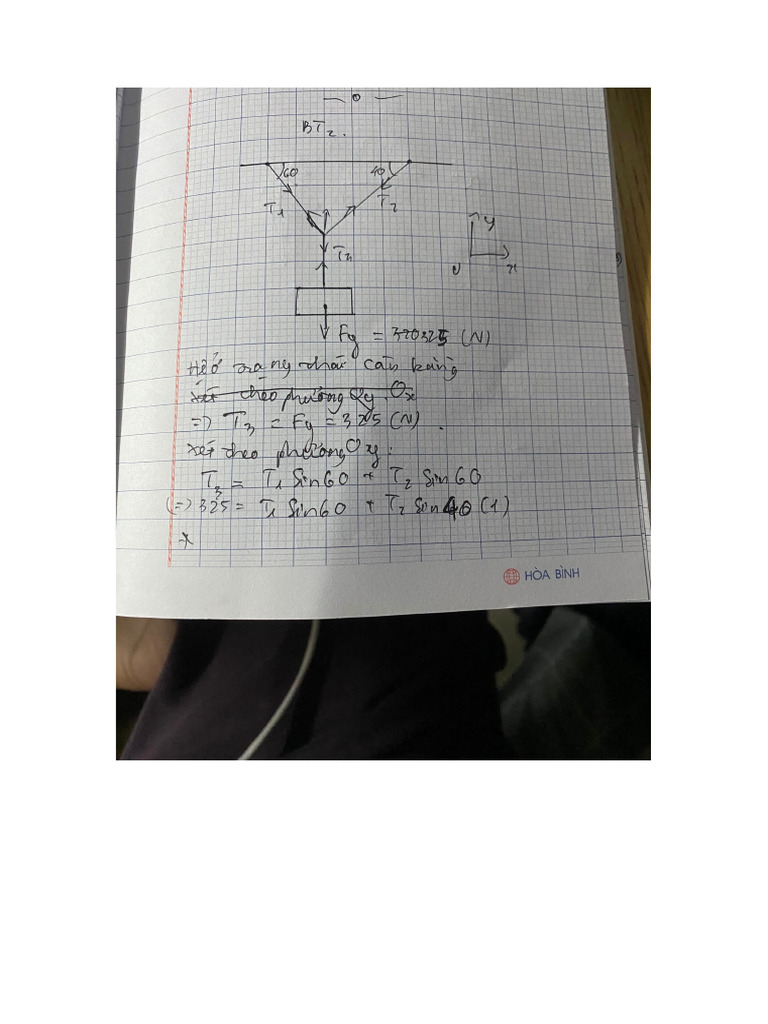 BT2.
60 40
T1 T2
y
T3
x
Fg = 325 (N)
Hệ ở trạng thái cân bằng
xét theo phương Ox
=> T3 = Fg = 325 (N).
xét theo phương Oy:
T3 = T1 Sin60 + T2 Sin60
(=) 325 = T1 Sin60 + T2 Sin40 (1)
*
HÒA BÌNH